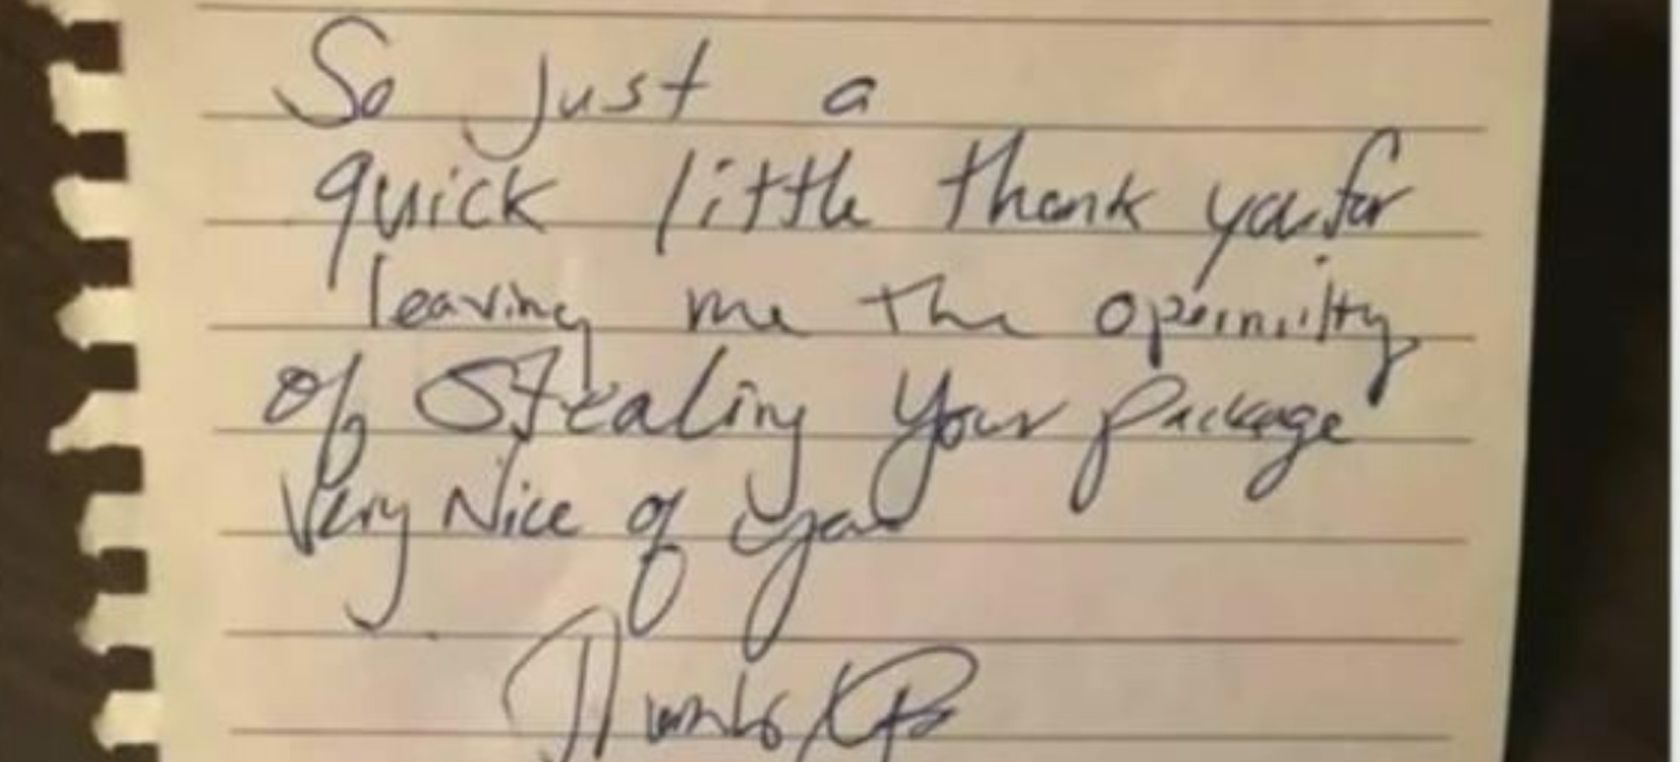 So Just a
quick little thank you for
leaving me the
of Stealing Your package
Very Nice of you
Thanks